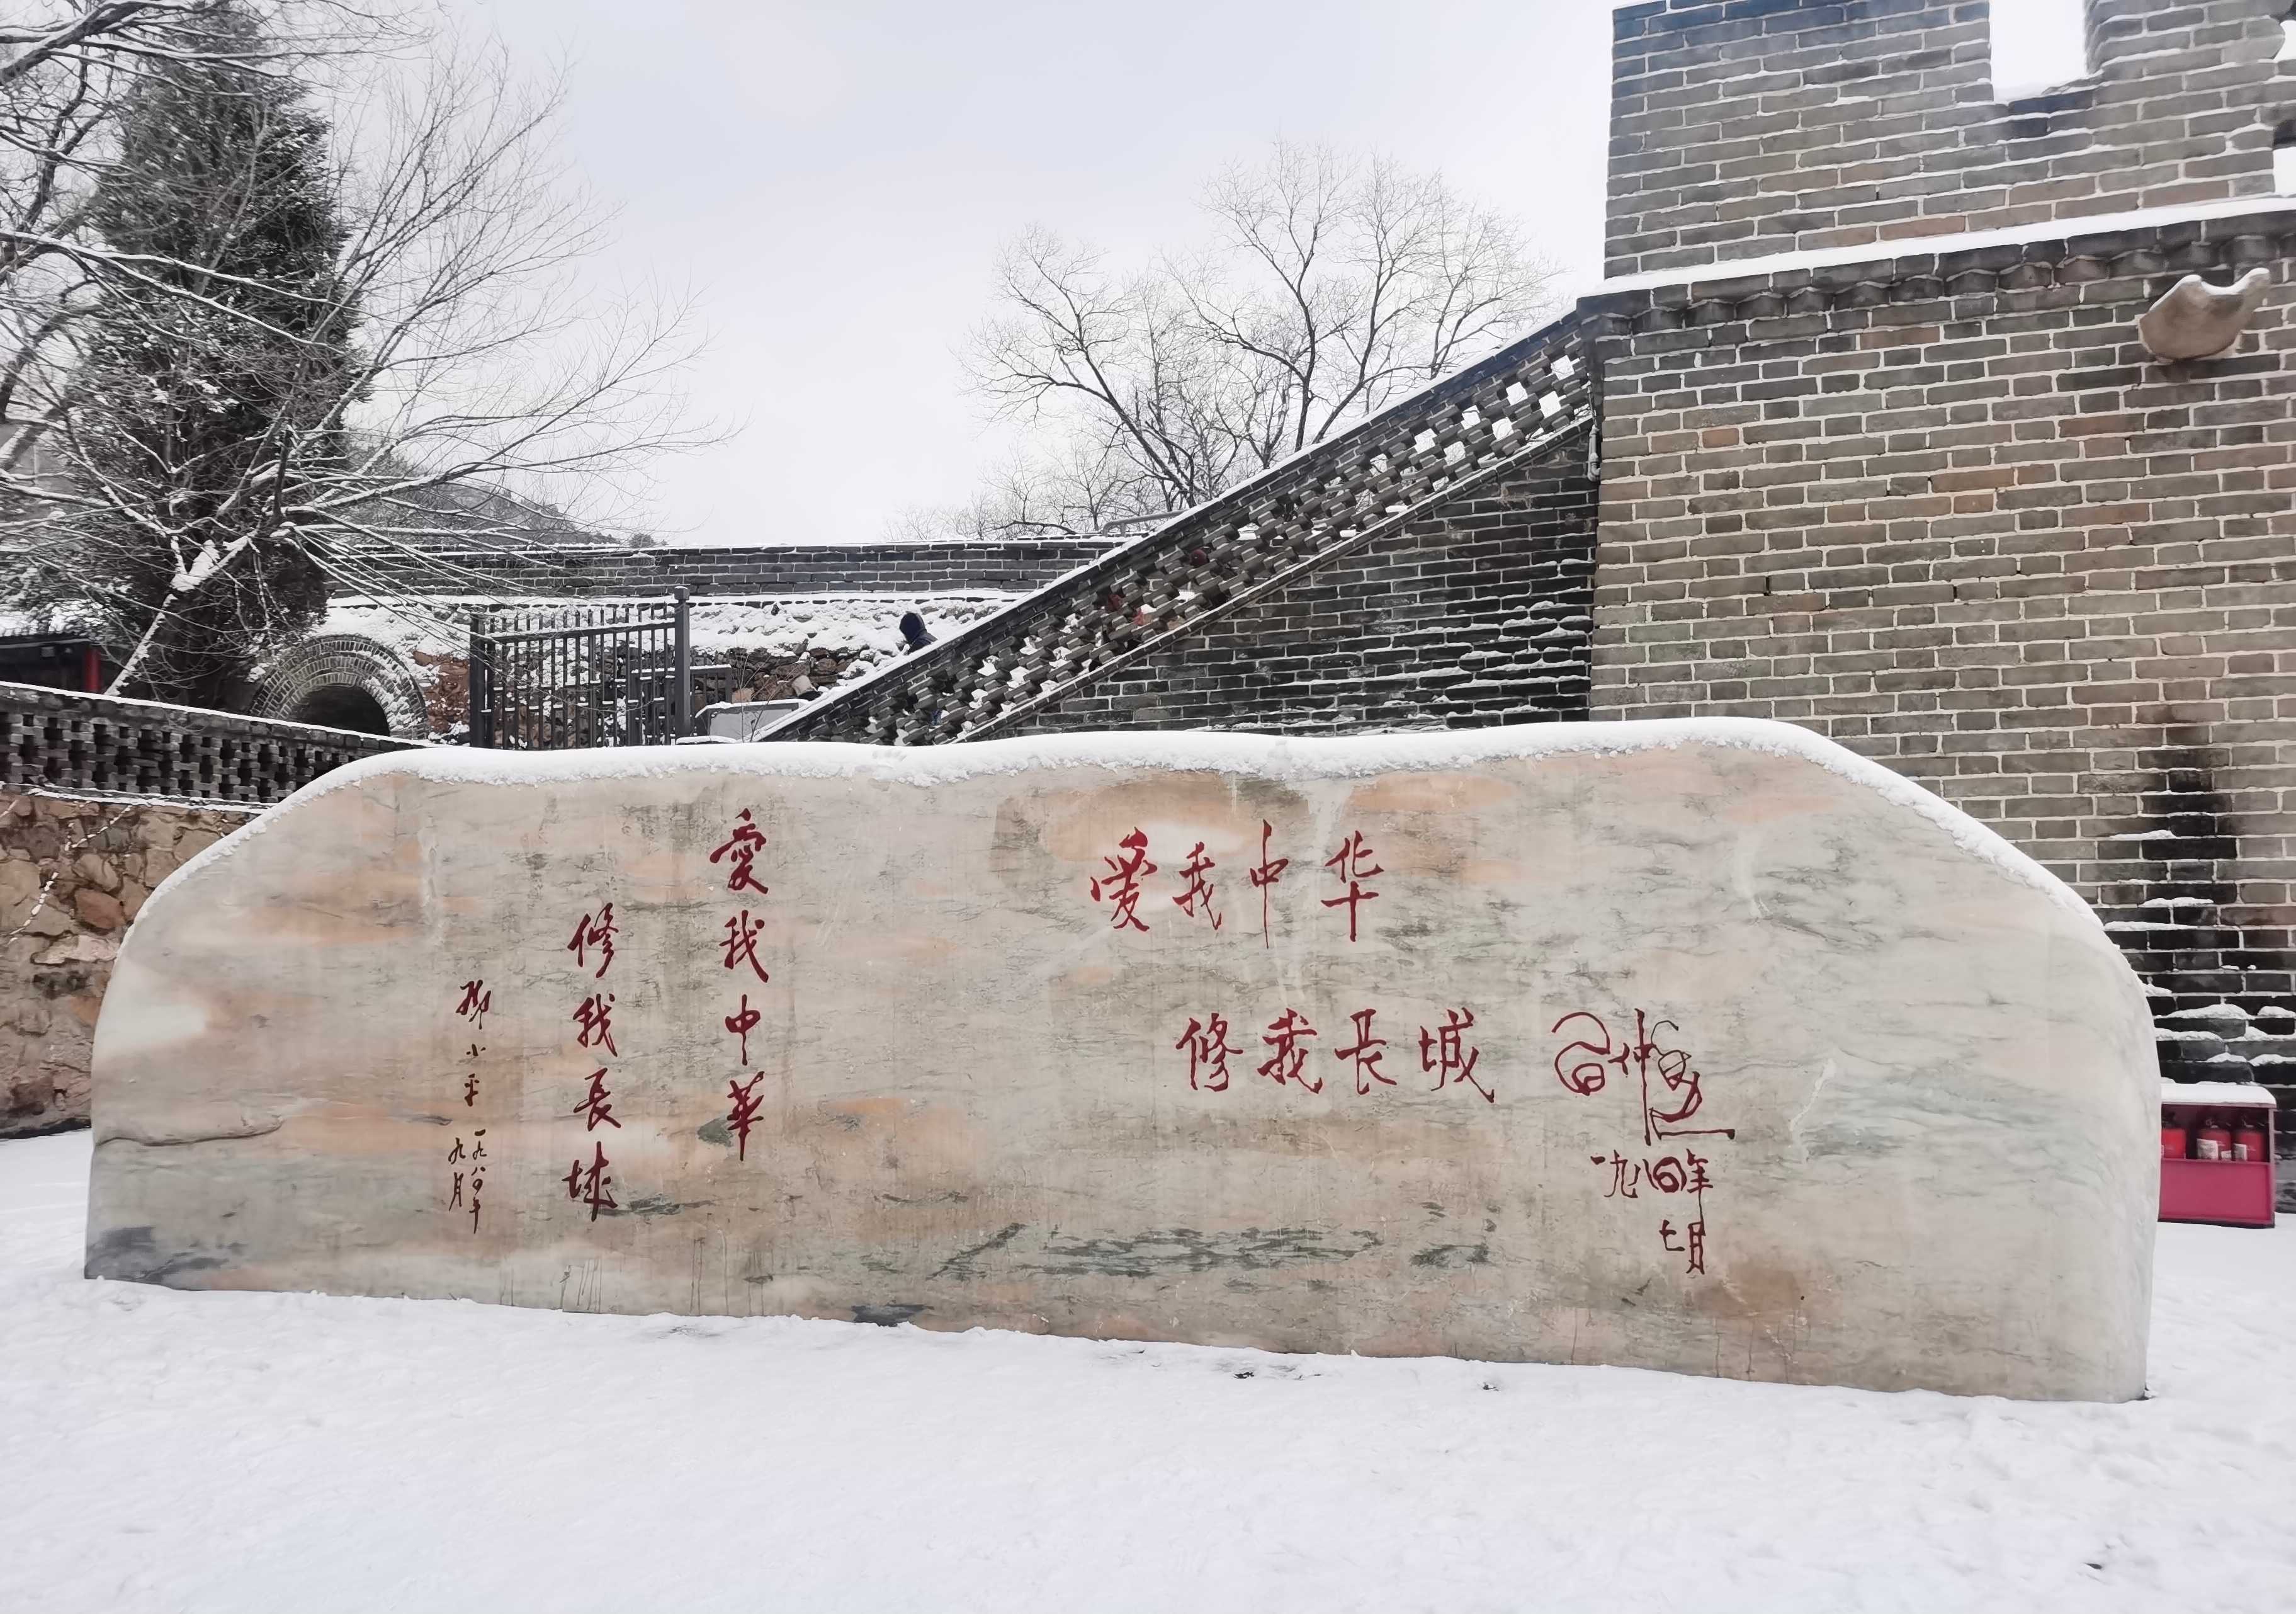 愛我中華
修我長城
鄧小平
一九八四年
九月
爱我中华
修我長城
习仲勋
一九八四年
七月